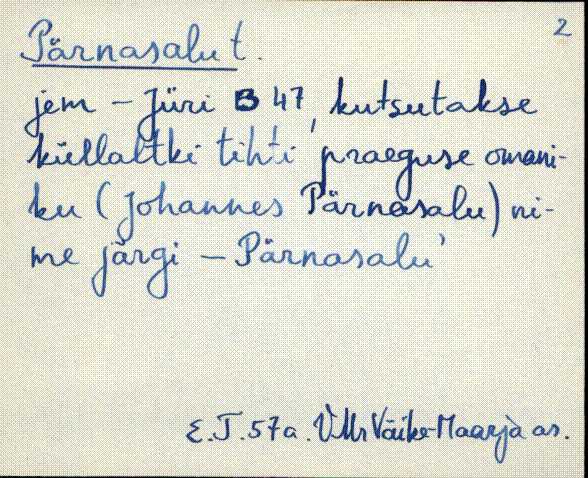 2
Pärnasalu t.
jem – Jüri B 47, kutsutakse
küllaltki tihti praeguse omani-
ku (Johannes Pärnasalu) ni-
me järgi – Pärnasalu'
E.T. 57a. VMr Väike-Maarja as.